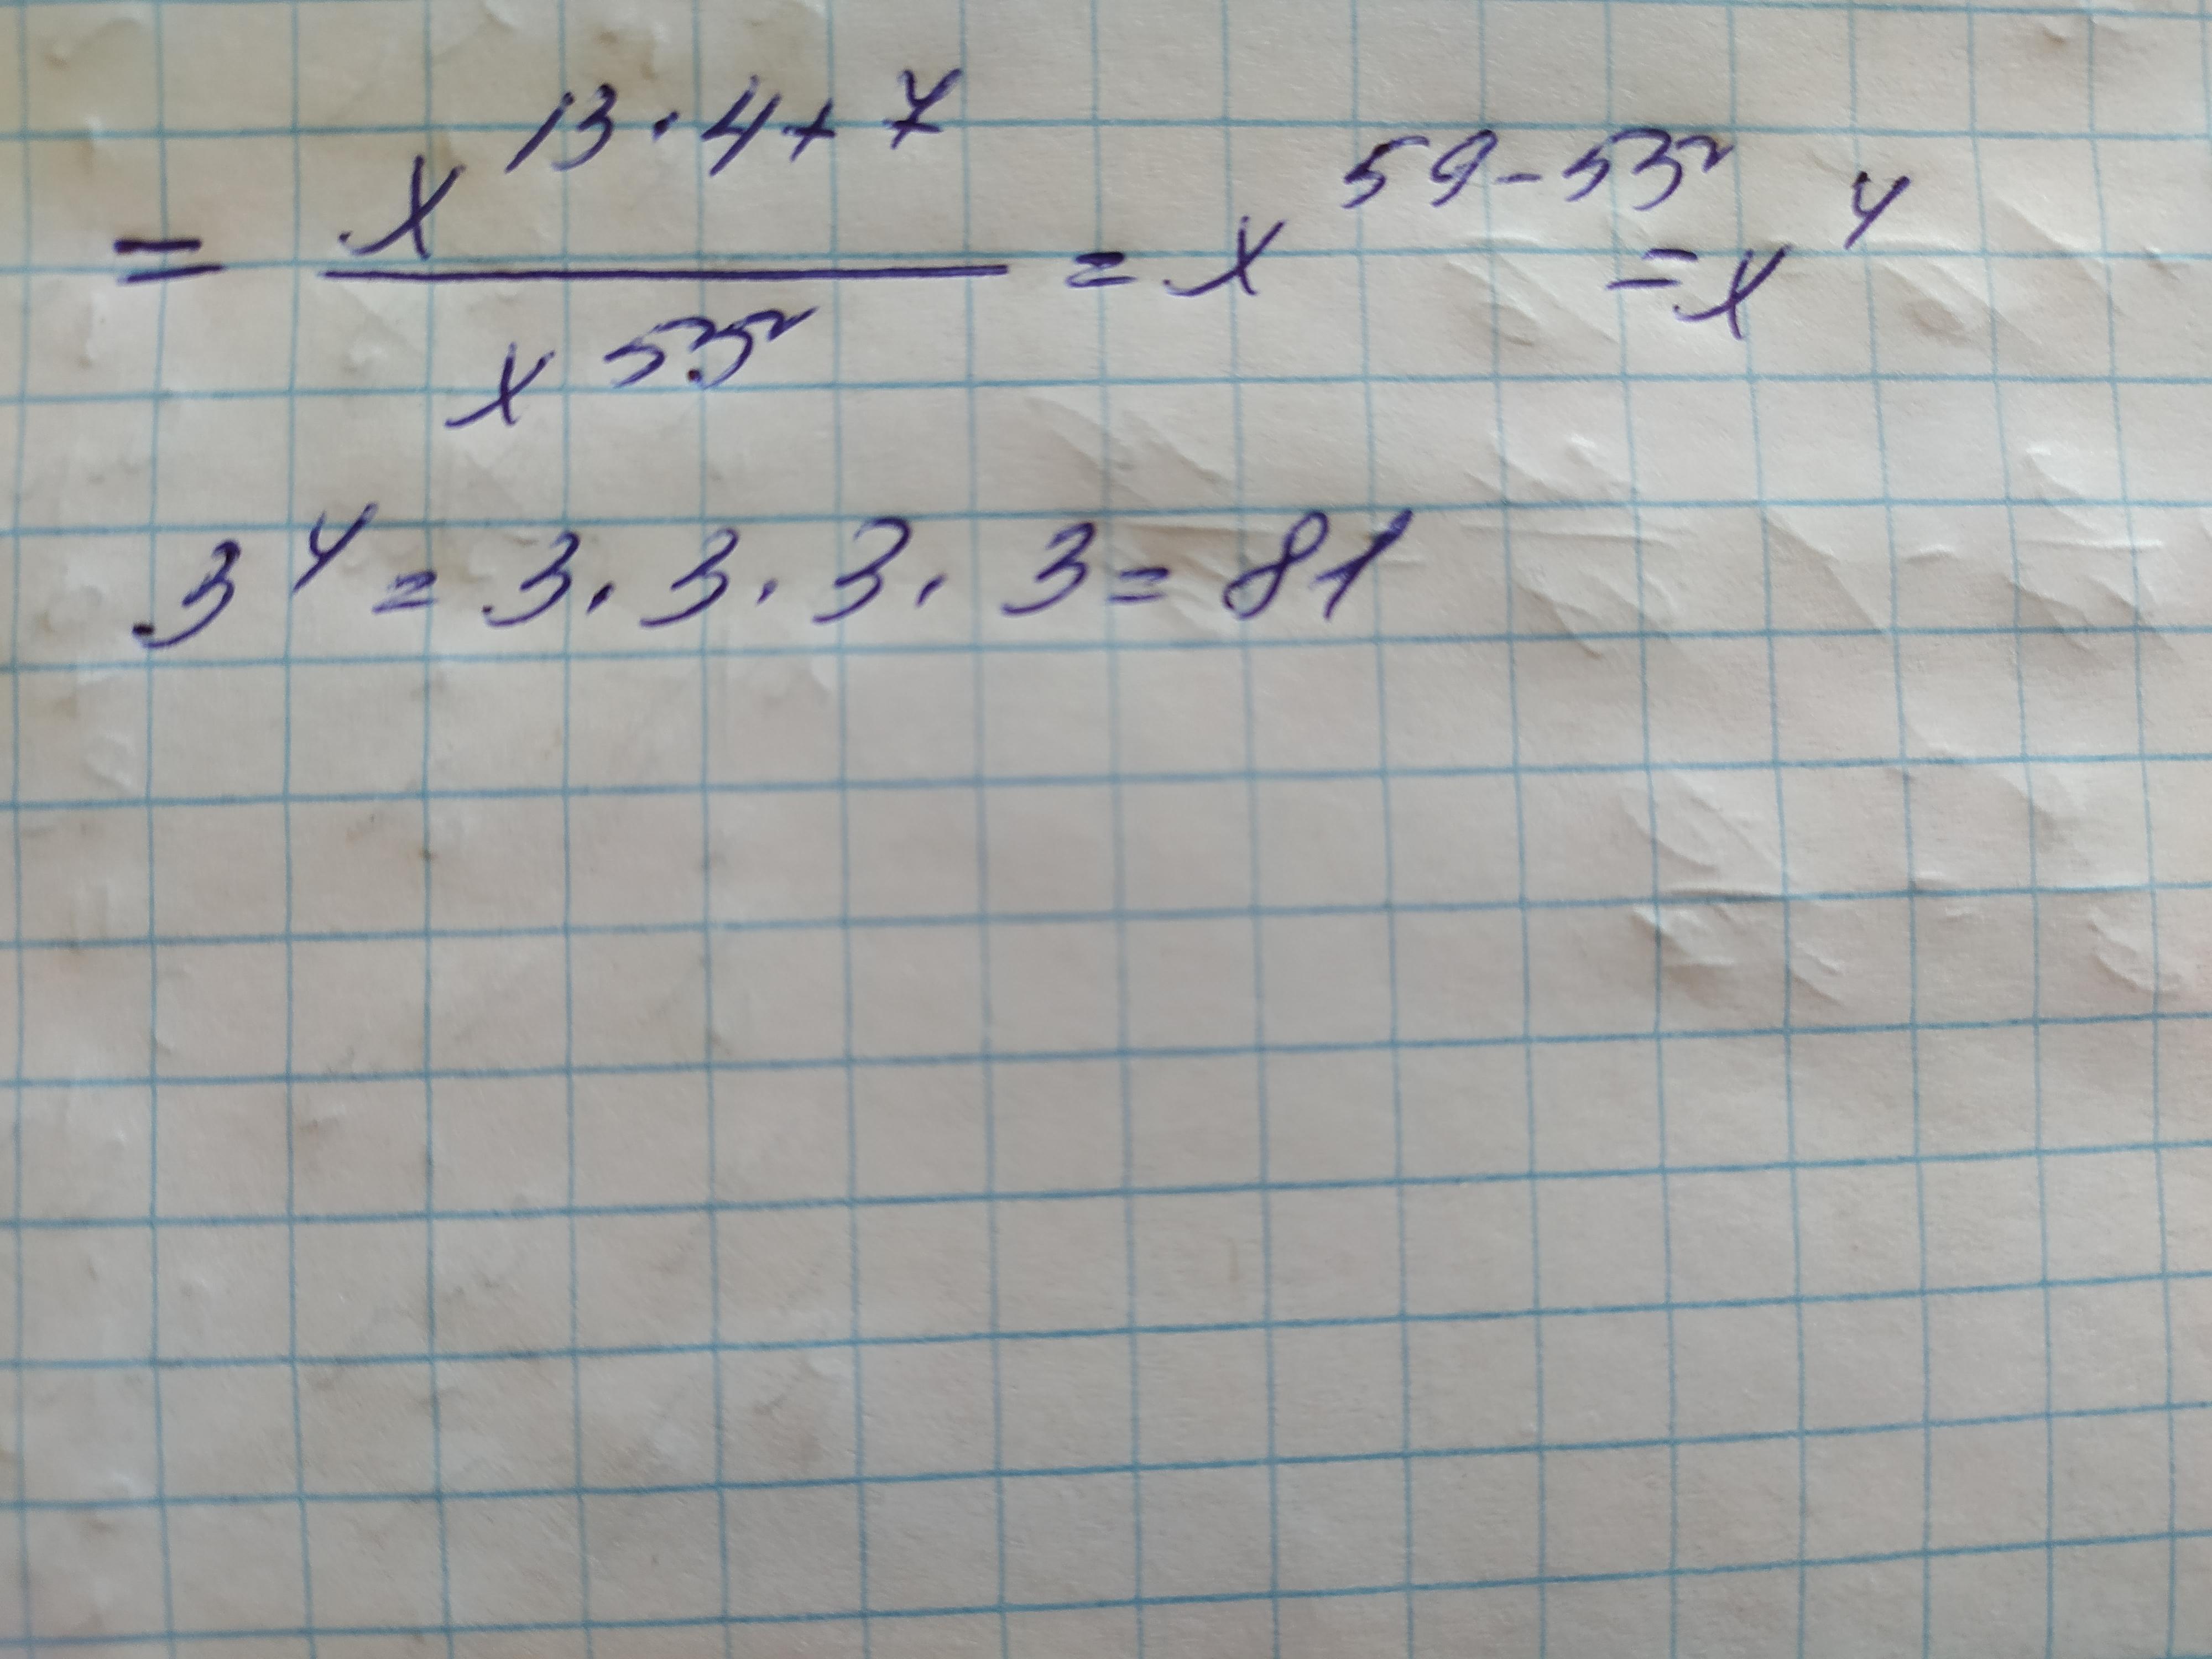 = x^{13·4+7} / x^{55} = x^{59-55} = x^4
3^4 = 3·3·3·3 = 81